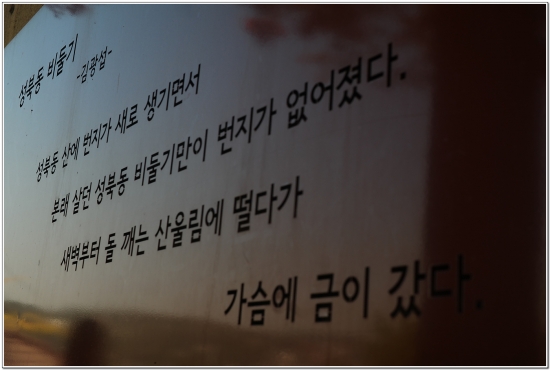 성북동 비둘기
-김광섭-
성북동 산에 번지가 새로 생기면서
본래 살던 성북동 비둘기만이 번지가 없어졌다.
새벽부터 돌 깨는 산울림에 떨다가
가슴에 금이 갔다.